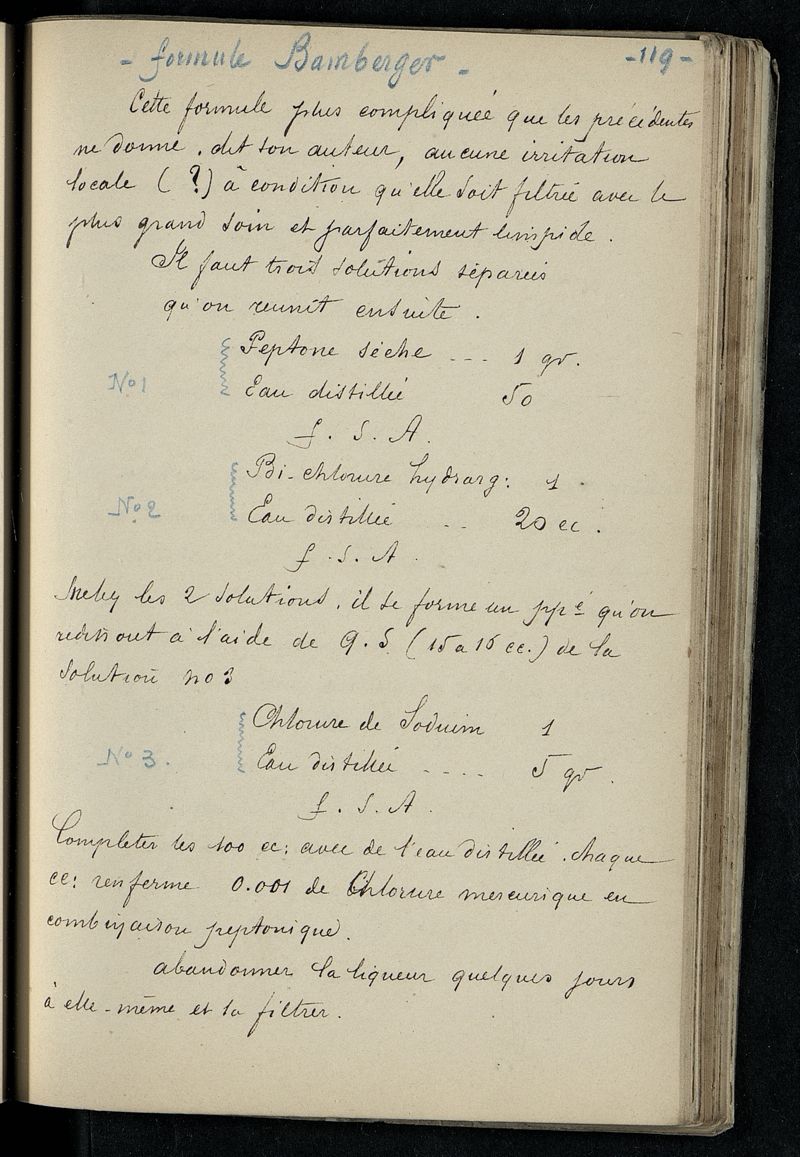 - formule Bamberger -
- 119 -
Cette formule plus compliquée que les précédentes
ne donne, dit son auteur, aucune irritation
locale (?) à condition qu'elle soit filtrée avec le
plus grand soin et parfaitement limpide.
Il faut trois solutions séparées
qu'on reunit ensuite.
Peptone sèche --- 1 gr.
No 1
Eau distillée 50
f. S. A.
Bi-chlorure hydrarg: 1
No 2
Eau distillée .. 20 cc.
f. S. A.
Melez les 2 solutions, il se forme un ppé qu'on
redissout à l'aide de Q.S (15 a 16 cc.) de la
Solution no 3
Chlorure de Sodium 1
No 3.
Eau distillée .... 5 gr.
f. S. A.
Completer les 100 cc: avec de l'eau distillée. Chaque
cc: renferme 0.001 de Chlorure mercurique en
combinaison peptonique.
abandonner la liqueur quelques jours
à elle-même et la filtrer.